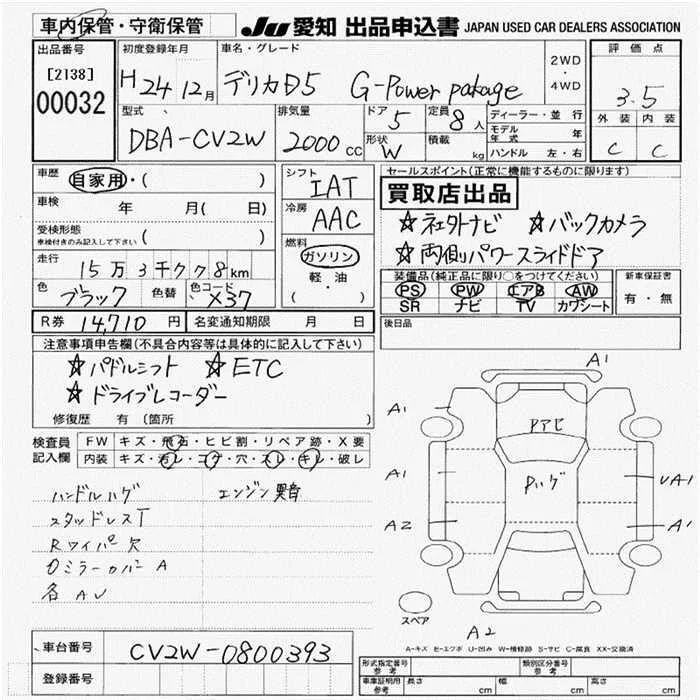 車内保管・守衛保管
JU 愛知 出品申込書 JAPAN USED CAR DEALERS ASSOCIATION
出品番号
[2138]
00032
初度登録年月
H24 12月
車名・グレード
デリカD5 G-Power pakage
2WD
・
4WD
評価点
3.5
外装 内装
C C
型式
DBA-CV2W
排気量
2000 CC
ドア
5
定員
8人
形状
W
積載
kg
ディーラー・並行
モデル年式 年
ハンドル 左・右
車歴
自家用・( )
車検 年 月( 日)
受検形態
車検付きのみ記入して下さい ( )
走行
15万3千 8km
色
ブラック
色替
色コード
X37
シフト
IAT
冷房
AAC
燃料
ガソリン
軽・油
( )
セールスポイント(正常に機能するものに限ります)
買取店出品
☆社外ナビ ☆バックカメラ
☆両側パワースライドドア
装備品(純正品に限り○をつけてください)
PS PW エアB AW
SR ナビ TV カワシート
新車保証書
有・無
R券 14,710 円
名変通知期限 月 日
後日品
注意事項申告欄(不具合内容等は具体的に記入して下さい)
☆パドルシフト ☆ETC
☆ドライブレコーダー
修復歴 有 (箇所 )
検査員記入欄
FW キズ・飛石・ヒビ割・リペア跡・X要
内装 キズ・汚レ・コゲ・穴・スレ・キレ・破レ
ハンドルハゲ エンジン異音
スタッドレスT
Rワイパー欠
ミラーカバーA
各AU
A1
A1
Pアビ
A1
Pハゲ
UA1
A2
A1
スペア
A2
A-キズ E-エクボ U-凹み W-補修跡 S-サビ C-腐食 XX-交換済
車台番号
CV2W-0800393
登録番号
形式指定番号
参考
類別区分番号
参考
車庫証明用
参考
長さ cm 幅 cm 高さ cm